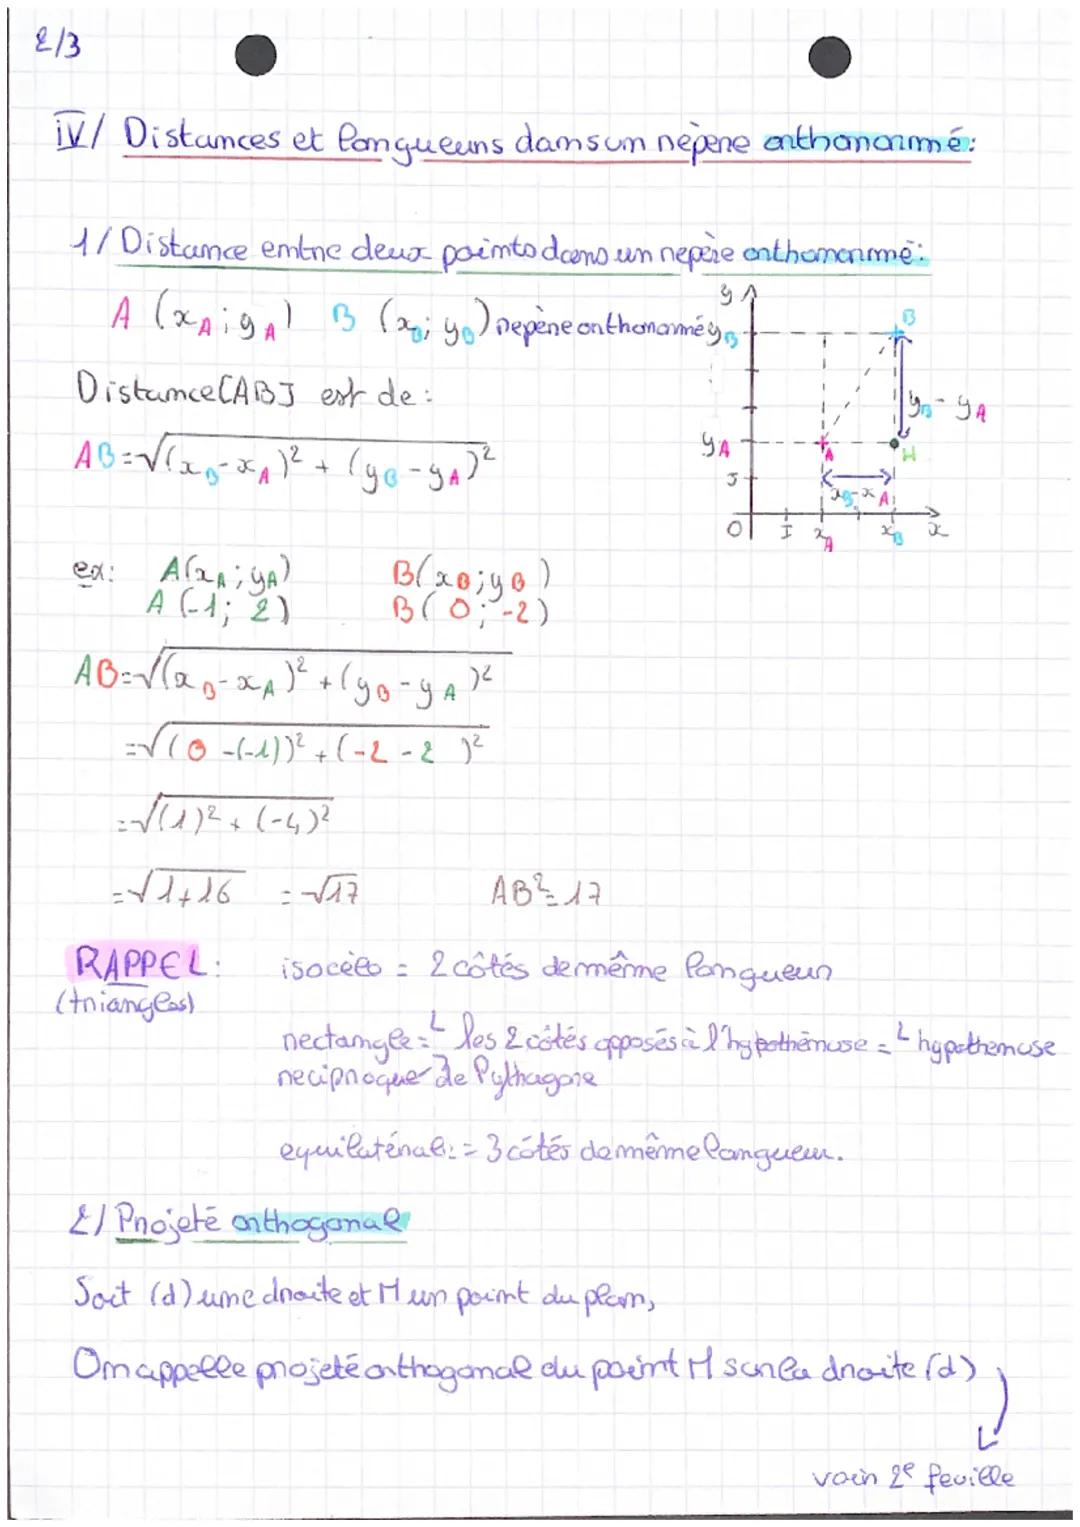 2/3
IV/ Distances et longueurs dans un repère orthonormé:
1/ Distance entre deux points dans un repère orthonormé:
A (xA ; yA) B (xB ; yB) repère orthonormé
Distance [AB] est de :
AB = √(xB - xA)² + (yB - yA)²
y
yB
B
yB - yA
yA
A
H
J
xB - xA
O I xA xB x
ex: A(xA ; yA) B(xB ; yB)
A (-1 ; 2) B( 0 ; -2)
AB = √(xB - xA)² + (yB - yA)²
= √(0 - (-1))² + (-2 - 2)²
= √(1)² + (-4)²
= √1+16 = √17 AB² = 17
RAPPEL : isocèle = 2 côtés de même longueur
(triangles)
rectangle = ² les 2 côtés opposés à l'hypothénuse = ² hypothenuse
reciproque de Pythagore
equilatéral: = 3 côtés de même longueur.
2/ Projeté orthogonal
Soit (d) une droite et M un point du plan,
On appelle projeté orthogonal du point M sur la droite (d)
voir 2e feuille